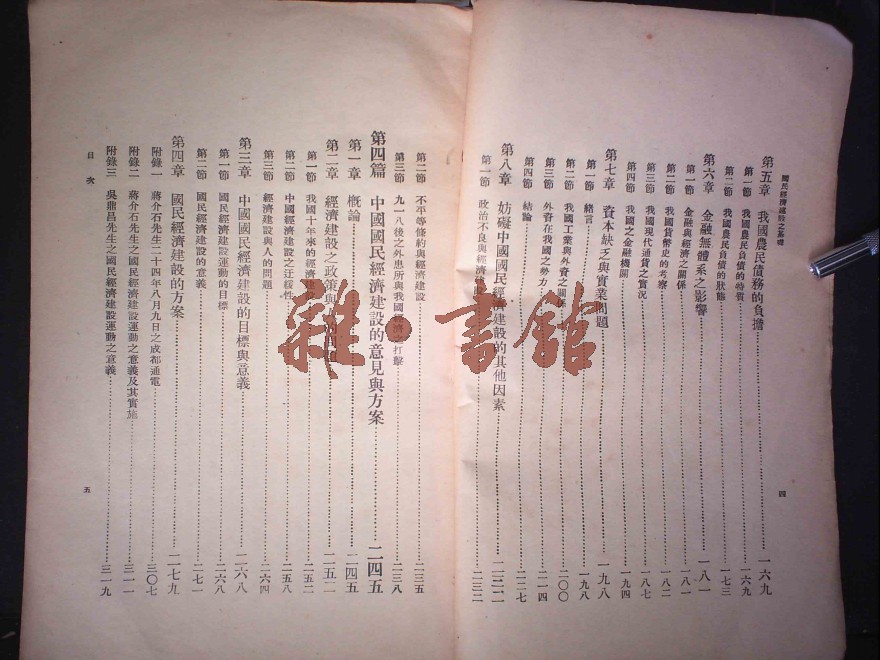 國民經濟建設之基礎
四
第五章 我國農民債務的負擔……一六九
第一節 我國農民負債的特質……一六九
第二節 我國農民負債的狀態……一七三
第六章 金融無體系之影響……一八一
第一節 金融與經濟之關係……一八一
第二節 我國貨幣史的考察……一八二
第三節 我國現代通貨之實況……一八七
第四節 我國之金融機關……一九四
第七章 資本缺乏與實業問題……一九八
第一節 緒言……一九八
第二節 我國工業與外資之關係……二〇〇
第三節 外資在我國之勢力……二一四
第四節 結論……二二七
第八章 妨礙中國國民經濟建設的其他因素……二三二
第一節 政治不良與經濟……二三二
第二節 不平等條約與經濟建設……二三五
第三節 九一八後之外患所與我國經濟之打擊……二三八
第四篇 中國國民經濟建設的意見與方案……二四五
第一章 概論……二四五
第二章 經濟建設之政策與……二五二
第一節 我國十年來的經濟建設……二五二
第二節 中國經濟建設之迂緩性……二五八
第三節 經濟建設與人的問題……二六四
第三章 中國國民經濟建設的目標與意義……二六八
第一節 國民經濟建設運動的目標……二六八
第二節 國民經濟建設的意義……二七一
第四章 國民經濟建設的方案……二七九
附錄一 蔣介石先生二十四年八月九日之成都通電……三〇七
附錄二 蔣介石先生之國民經濟建設運動之意義及其實施……三一一
附錄三 吳鼎昌先生之國民經濟建設運動之意義……三一九
目次
五
雜·書館